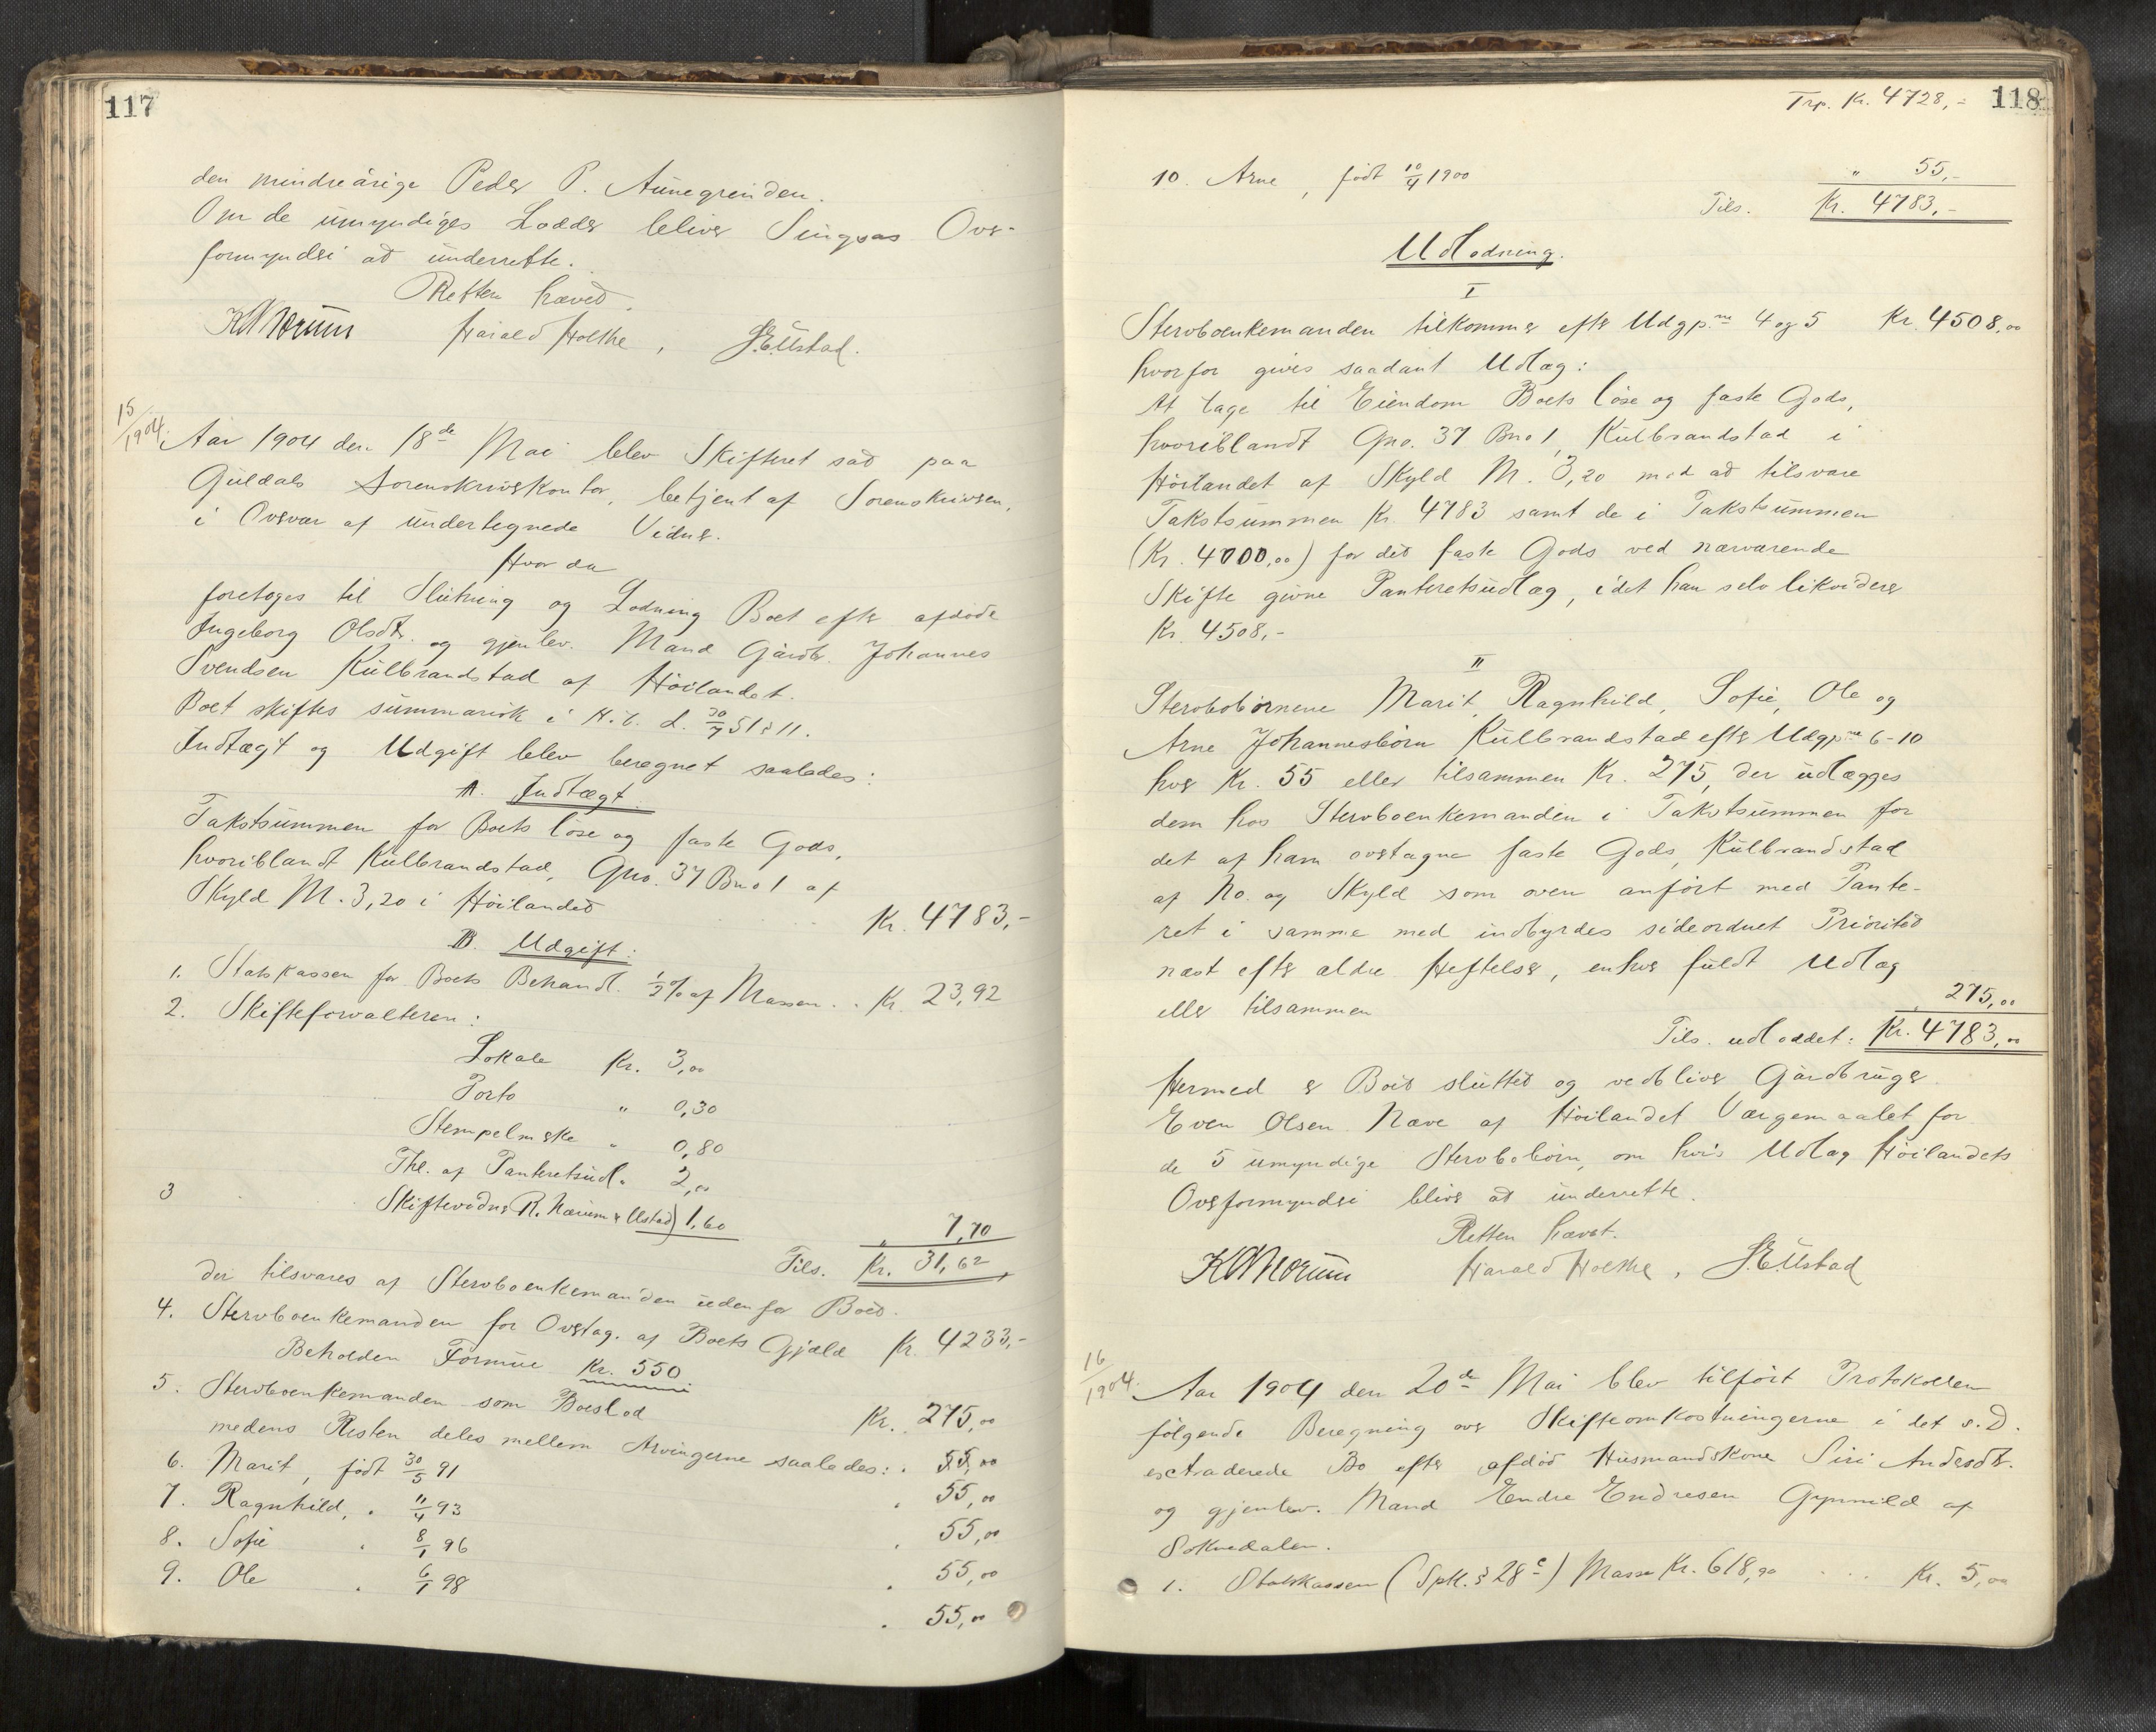 117
den mindreårige Peder P. Aunegrinden.
Om de umyndiges Lodder bliver Singsas Over-
formynderi at underrette.
Retten hævet.
KANorum Harald Holthe, J.E.Ustad.
15/1904. Aar 1904 den 18de Mai blev Skifteret sat paa
Guldals Sorenskriverkontor, betjent af Sorenskriveren,
i Overvær af undertegnede Vidner.
Hvor da
foretoges til Slutning og Lodning Boet efter afdøde
Ingeborg Olsdtr. og gjenlev. Mand Gårdbr. Johannes
Svendsen Kulbrandstad af Höilandet.
Boet skiftes summarisk i H.t. L. 30/7 51 § 11.
Indtægt og Udgift blev beregnet saaledes:
A. Indtægt.
Takstsummen for Boets löse og faste Gods,
hvoriblandt Kulbrandstad, Gno. 37 Bno 1 af
Skyld M. 3,20 i Höilandet Kr. 4783,-
B. Udgift:
1. Statskassen for Boets Behandl. ½ % af Massen .. Kr. 23,92
2. Skifteforvalteren:
Lokale Kr. 3,00
Porto " 0,30
Stempelmærke " 0,80
Thl. af Panteretsudl. 2,00
3 Skiftevidner R. Nærum & Ustad) 1,60
" 7,70
Tils. Kr. 31,62
der tilsvares af Stervboenkemanden udenfor Boet.
4. Stervboenkemanden for Overtag. af Boets Gjæld Kr. 4233,-
Beholden Formue Kr. 550.
5. Stervboenkemanden som Boeslod Kr. 275,00
medens Resten deles mellem Arvingerne saaledes:
6. Marit, født 30/5 91 . 55,00
7. Ragnhild, . 11/4 93 . 55,00
8. Sofie . 8/1 96 . 55,00
9. Ole . 6/1 98 . 55,00
. 55,00
Trp. Kr. 4728,- 118
10. Arne, født 10/4 1900 " 55,-
Tils. Kr. 4783,-
Udlodning.
I
Stervboenkemanden tilkommer efter Udgp.ne 4 og 5 Kr. 4508,00
hvorfor gives saadant Udlæg:
At tage til Eiendom Boets löse og faste Gods,
hvoriblandt Gno. 37 Bno 1, Kulbrandstad i
Höilandet af Skyld M. 3,20 mod at tilsvare
Takstsummen Kr. 4783 samt de i Takstsummen
(Kr. 4000,00) for det faste Gods ved nærværende
Skifte givne Panteretsudlæg, idet han selv likviderer
Kr. 4508,-
II
Stervbobörnene Marit, Ragnhild, Sofie, Ole og
Arne Johannesbörn Kulbrandstad efter Udgp.ne 6-10
hver Kr. 55 eller tilsammen Kr. 275, der udlægges
dem hos Stervboenkemanden i Takstsummen for
det af ham overtagne faste Gods, Kulbrandstad
af No. og Skyld som oven anfört med Pante-
ret i samme med indbyrdes sideordnet Prioritet
næst efter ældre Heftelser, enhver fuldt Udlæg
eller tilsammen " 275,00
Tils. udloddet: Kr. 4783,00
Hermed er Boet sluttet og vedbliver Gårdbruger
Even Olsen Næve af Höilandet Værgemaalet for
de 5 umyndige Stervbobörn, om hvis Udlæg Höilandets
Overformynderi bliver at underrette.
Retten hævet.
KANorum Harald Holthe, J.E.Ustad
16/1904. Aar 1904 den 20de Mai blev tilfört Protokollen
fölgende Beregning over Skifteomkostningerne i det s.D.
extraderede Bo efter afdöd Husmandskone Siri Andersdtr.
og gjenlev. Mand Endre Endresen Gynnild af
Soknedalen.
1. Statskassen (Spl. § 28 c) Masse Kr. 618,90 ... Kr. 5,00